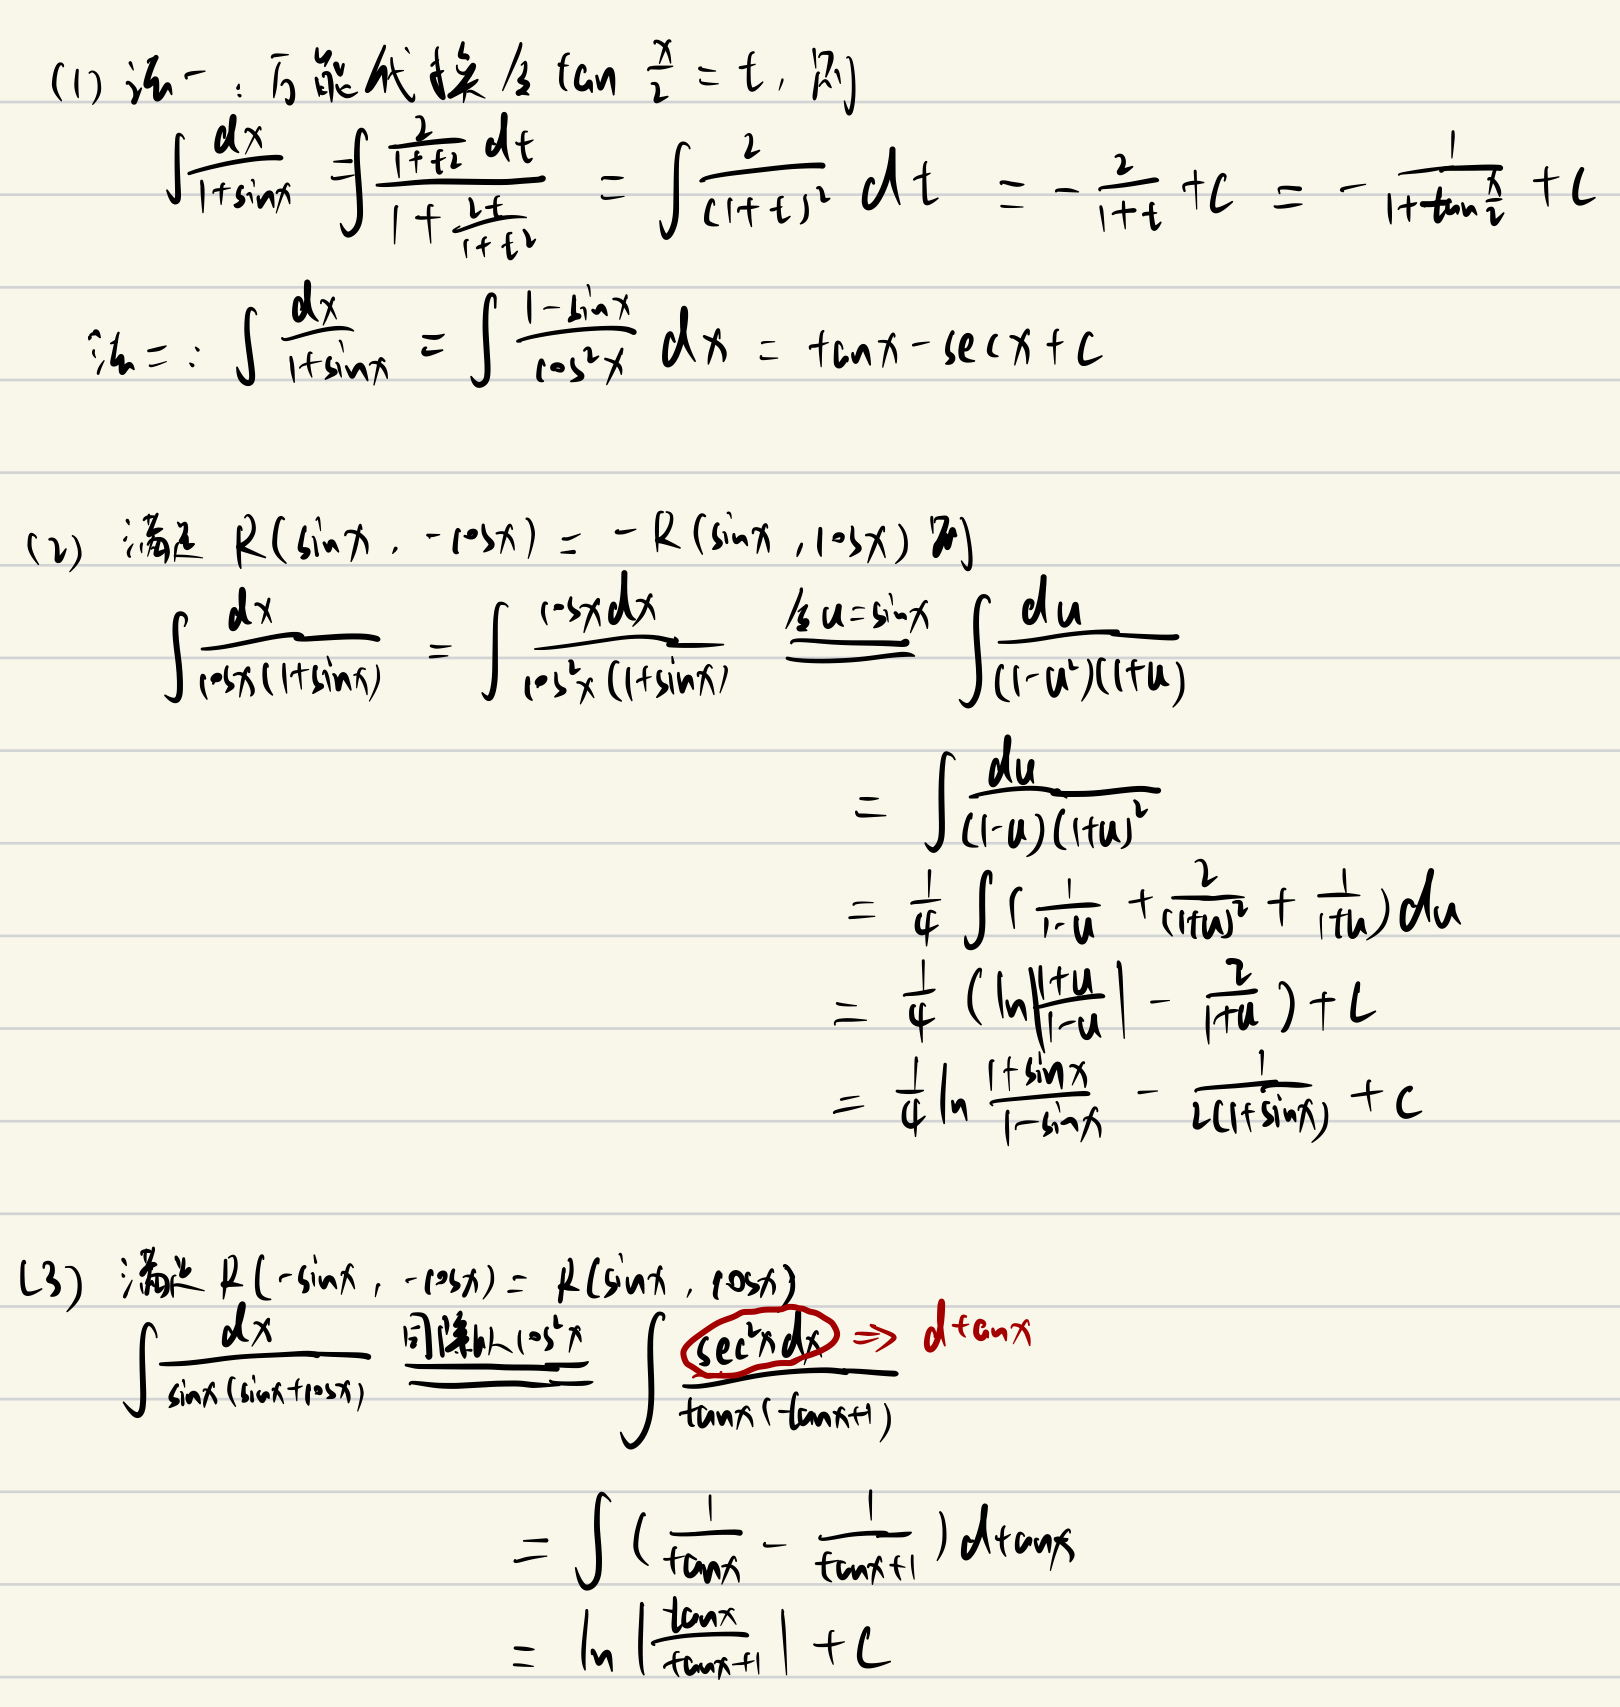 (1) 法一：万能代换 令 tan x/2 = t，则
∫ dx/(1+sinx) = ∫ (2/(1+t²) dt)/(1 + 2t/(1+t²)) = ∫ 2/(1+t)² dt = - 2/(1+t) + C = - 1/(1+tan x/2) + C
法二：∫ dx/(1+sinx) = ∫ (1-sinx)/cos²x dx = tanx - secx + C
(2) 满足 R(sinx, -cosx) = -R(sinx, cosx) 则
∫ dx/(cosx(1+sinx)) = ∫ cosxdx/(cos²x(1+sinx)) 令u=sinx ∫ du/((1-u²)(1+u))
= ∫ du/((1-u)(1+u)²)
= 1/4 ∫ (1/(1-u) + 2/(1+u)² + 1/(1+u)) du
= 1/4 (ln|(1+u)/(1-u)| - 2/(1+u)) + C
= 1/4 ln (1+sinx)/(1-sinx) - 1/(2(1+sinx)) + C
(3) 满足 R(-sinx, -cosx) = R(sinx, cosx)
∫ dx/(sinx(sinx+cosx)) 同除以cos²x ∫ sec²xdx/(tanx(tanx+1)) ⇒ dtanx
= ∫ (1/tanx - 1/(tanx+1)) dtanx
= ln |tanx/(tanx+1)| + C